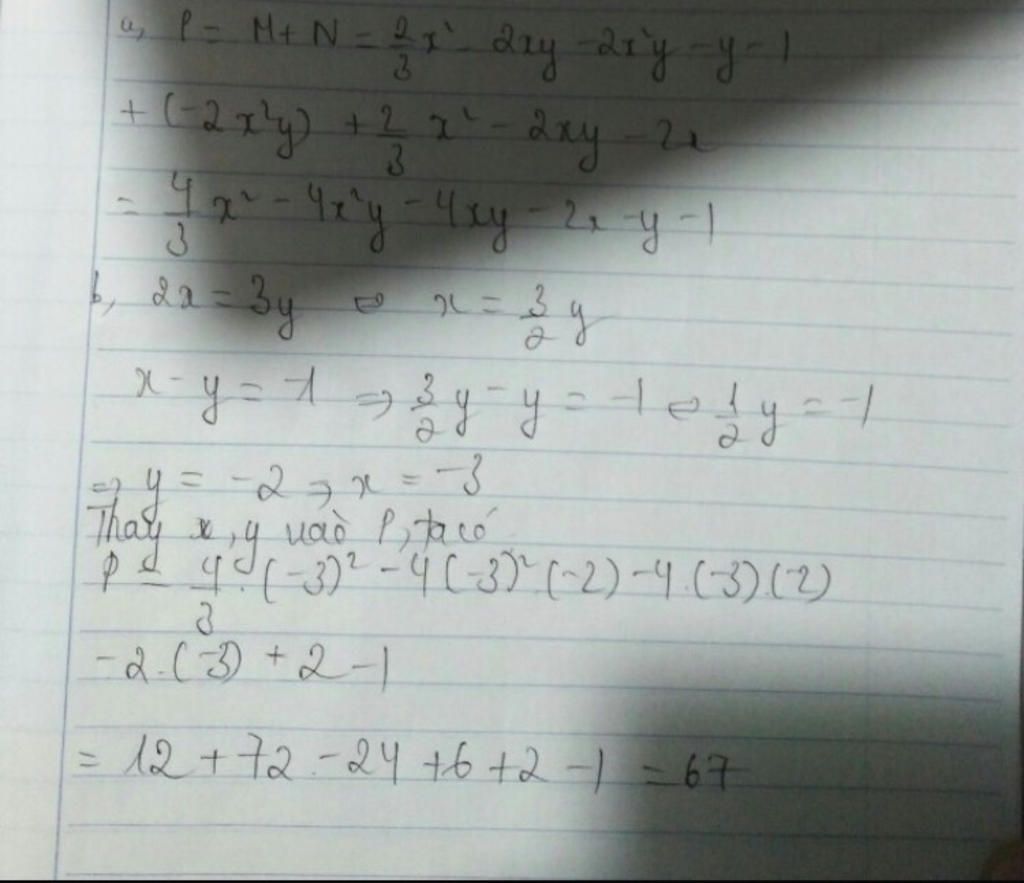 a, P = M + N = 2/3 x² - 2xy - 2x²y - y - 1
+ (-2x²y) + 2/3 x² - 2xy - 2x
= 4/3 x² - 4x²y - 4xy - 2x - y - 1
b, 2x = 3y ⇔ x = 3/2 y
x - y = -1 ⇒ 3/2 y - y = -1 ⇔ 1/2 y = -1
⇒ y = -2 ⇒ x = -3
Thay x, y vào P, ta có
P = 4/3 . (-3)² - 4(-3)² (-2) - 4.(-3).(-2)
-2.(-3) + 2 - 1
= 12 + 72 - 24 + 6 + 2 - 1 = 67